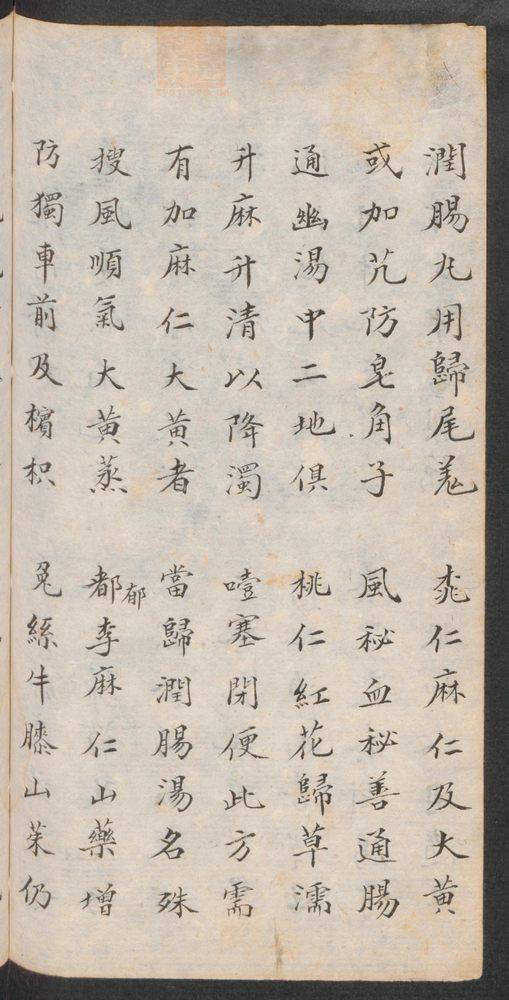 潤腸丸用歸尾羌 桃仁麻仁及大黄
或加艽防皂角子 風秘血秘善通腸
通幽湯中二地俱 桃仁紅花歸草濡
升麻升清以降濁 噎塞閉便此方需
有加麻仁大黄者 當歸潤腸湯名殊
搜風順氣大黄蒸 都李麻仁山藥增
郁
防獨車前及檳枳 兔絲牛膝山茱仍